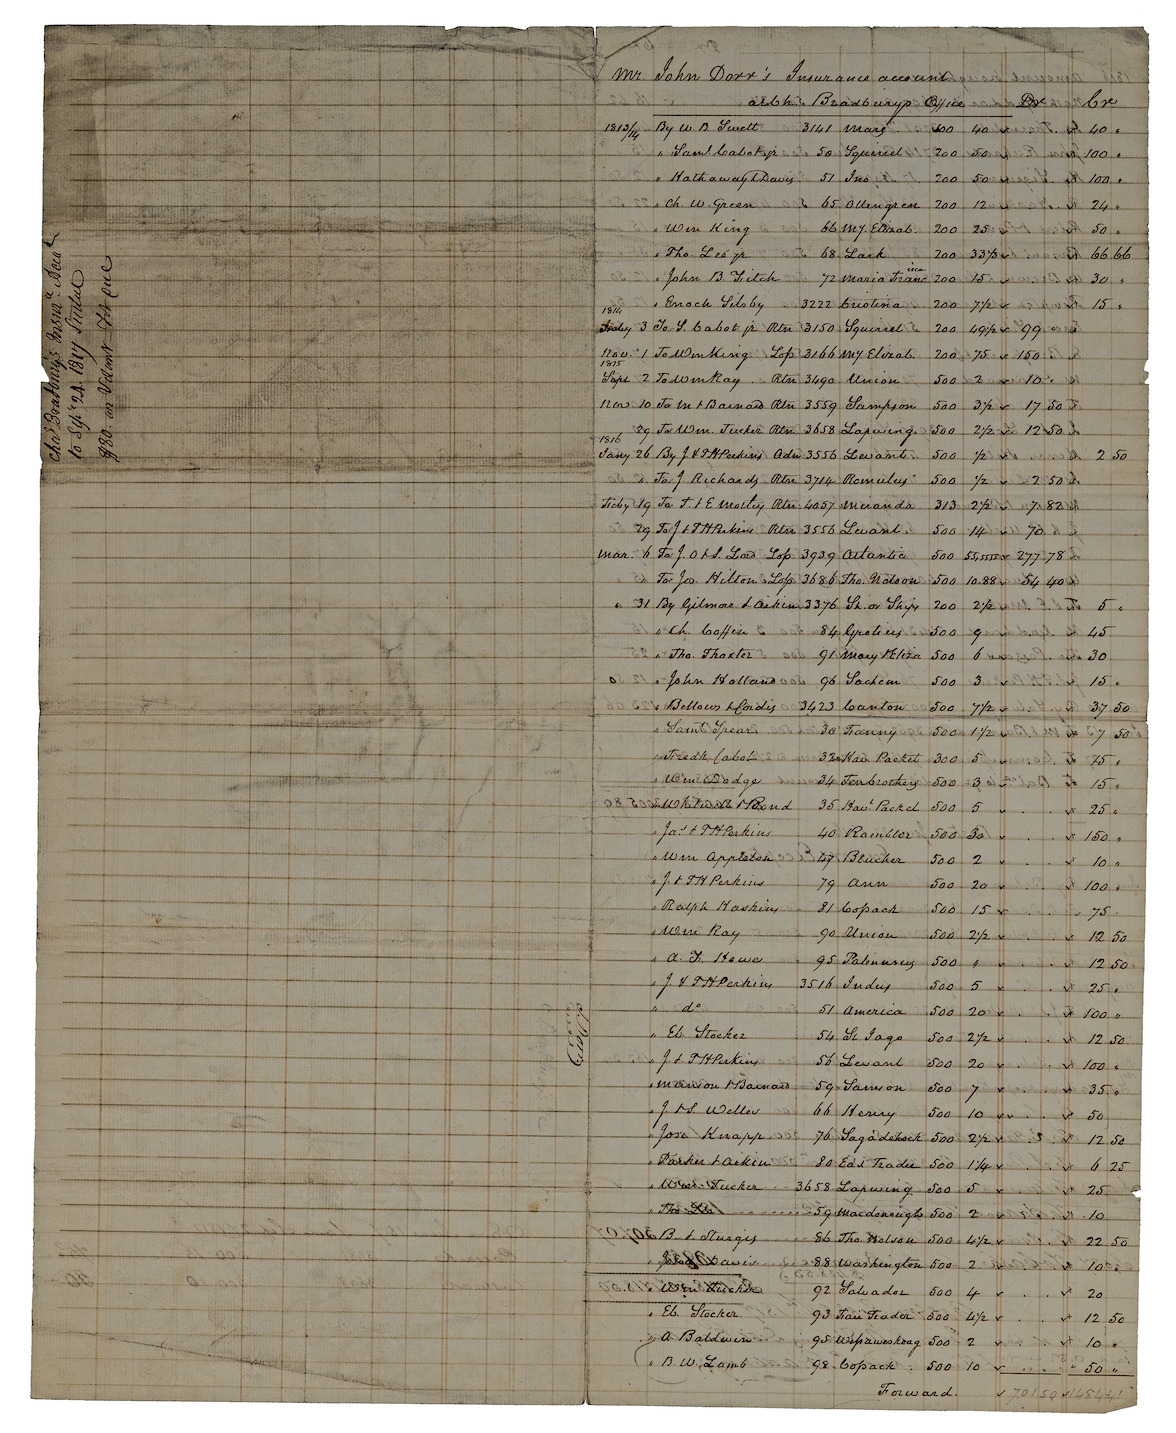 Chas Bradbury's Insnce Acct
to Septr 24. 1817 Settled
$80. on Vilmt Fot due
Mr John Dorr's Insurance account
at Ch. Bradburys Office Dr Cr
1813/14 By W B Swett 3141 Mars 100 40 40 "
" Saml Cabot jr 50 Squirrel 200 50 100 "
" Hathaway & Davis 51 Ino 200 50 100 "
" Ch W Green 65 Ottengren 200 12 24 "
" Wm King 66 My Elizab. 200 25 50 "
" Tho. Lee jr 68 Lark 200 33⅓ 66 66
" John B Fitch 72 Maria Francisca 200 15 30 "
" Enoch Silsby 3222 Cristina 200 7½ 15 "
1814
Feby 3 To S. Cabot jr Rtn 3150 Squirrel 200 49½ 99
Nov 1 To Wm King Lop 3166 My Elizab. 200 75 150
1815
Sept 2 To Wm Ray Rtn 3490 Union 500 2 10
Nov 10 To M & Barnard Rtn 3559 Sampson 500 3½ 17 50
29 To Wm. Tucker Rtn 3658 Lapwing 500 2½ 12 50
1816
Jany 26 By J & T H Perkins Adn 3556 Levant 500 ½ 2 50
" To J Richards Rtn 3714 Romulus 500 ½ 2 50
Feby 19 To J. & E Motley Rtn 4057 Miranda 313 2½ 7.82
29 To J & T H Perkins Rtn 3556 Levant 500 14 70
Mar. 6 To J. O & S. Low Lop 3939 Atlantic 500 55,5555 277.78
" To Jo. Hilton Lop 3686 Tho. Nelson 500 10.88 54 40
" 31 By Gilmore & Aitkin 3376 Sh. or Ships 200 2½ 5 "
" Ch. Coffin 84 Grotius 500 9 45
" Tho. Thaxter 91 Mary & Eliza 500 6 30
" John Holland 96 Sachem 500 3 15 "
" Bellows & Cordis 3423 Canton 500 7½ 37 50
" Saml Spear 30 Fanny 500 1½ 7 50
" Fredk Cabot 32 Hav Packet 300 5 15 "
" Wm Dodge 34 Ten brothers 500 3 15 "
" Whitwell & Bond 35 Hav. Packet 500 5 25 "
" Jas & T H Perkins 40 Rambler 500 30 150 "
" Wm Appleton 47 Blucher 500 2 10 "
" J. & T H Perkins 79 Ann 500 20 100 "
" Ralph Haskins 81 Cossack 500 15 75
" Wm Ray 90 Union 500 2½ 12 50
" A. F. Howe 95 Palinurus 500 " 12 50
" J. & T H Perkins 3516 Indus 500 5 25 "
" do 51 America 500 20 100 "
" Eb. Stocker 54 St Iago 500 2½ 12 50
" J & T H Perkins 56 Levant 500 20 100 "
" Marion & Barnard 59 Samson 500 7 35 "
" J. & S. Welles 66 Henry 500 10 50
" Josa Knapp 76 Sagadehock 500 2½ 12 50
" Parker & Aitkin 80 Eas Trader 500 1¼ 6 25
" Wm. Tucker 3658 Lapwing 500 5 25
" Tho. Lee 59 Macdonough 500 2 10
" B. & Sturgis 86 Tho Nelson 500 4½ 22 50
" Davis 88 Washington 500 2 10 "
" Wm Tucker 92 Salvador 500 4 20
" Eb. Stocker 93 Fair Trader 500 4½ 12 50
" A Baldwin 95 Wessaweskeag 500 2 10 "
" B. W. Lamb 98 Cossack 500 10 50 "
Forward. 701 50 1484 41